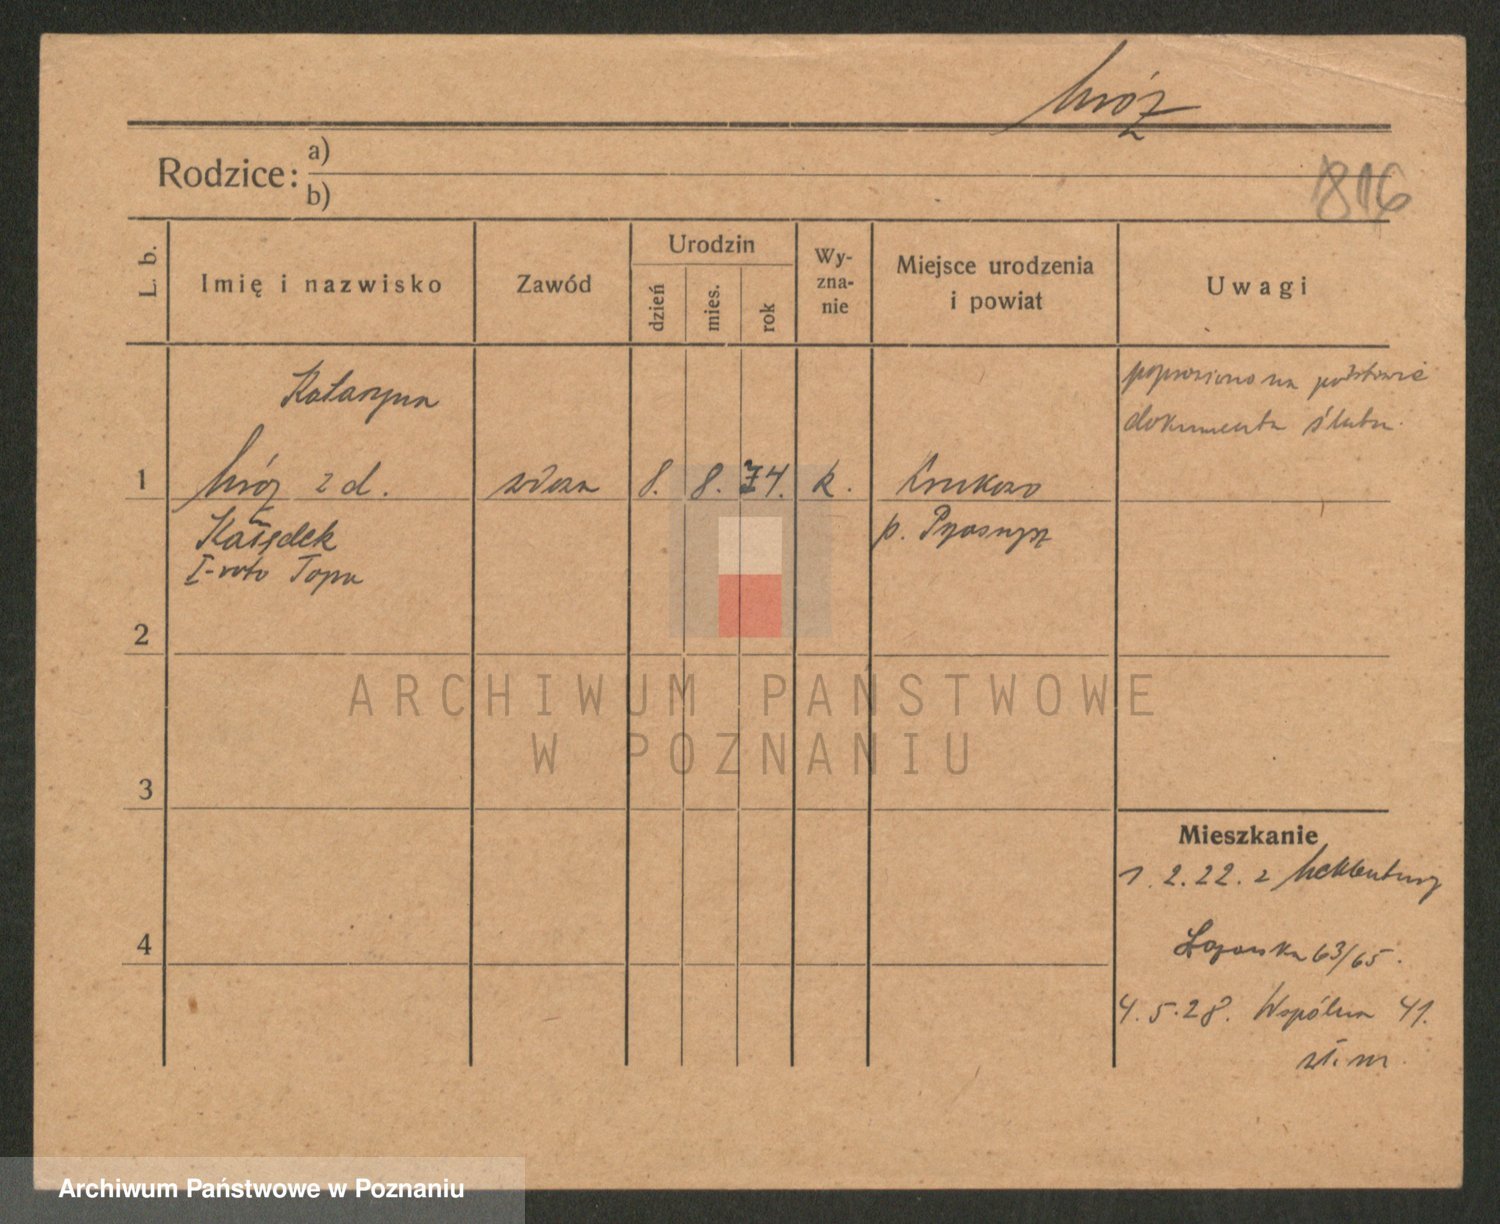 Mróz
Rodzice: a)
b)
816
L. b.
Imię i nazwisko
Zawód
Urodzin
dzień
mies.
rok
Wy-
zna-
nie
Miejsce urodzenia
i powiat
Uwagi
Katarzyna
poprawiono na podstawie
dokumentu ślubu.
1
Mróz z d.
wdowa
8.
8.
74.
k.
Krukowo
Kołądek
p. Przasnysz
I-voto Topa
2
ARCHIWUM PAŃSTWOWE
W POZNANIU
3
Mieszkanie
1.2.22. z Meklenburg
4
Łazarska 63/65.
4.5.28. Wspólna 41.
Archiwum Państwowe w Poznaniu